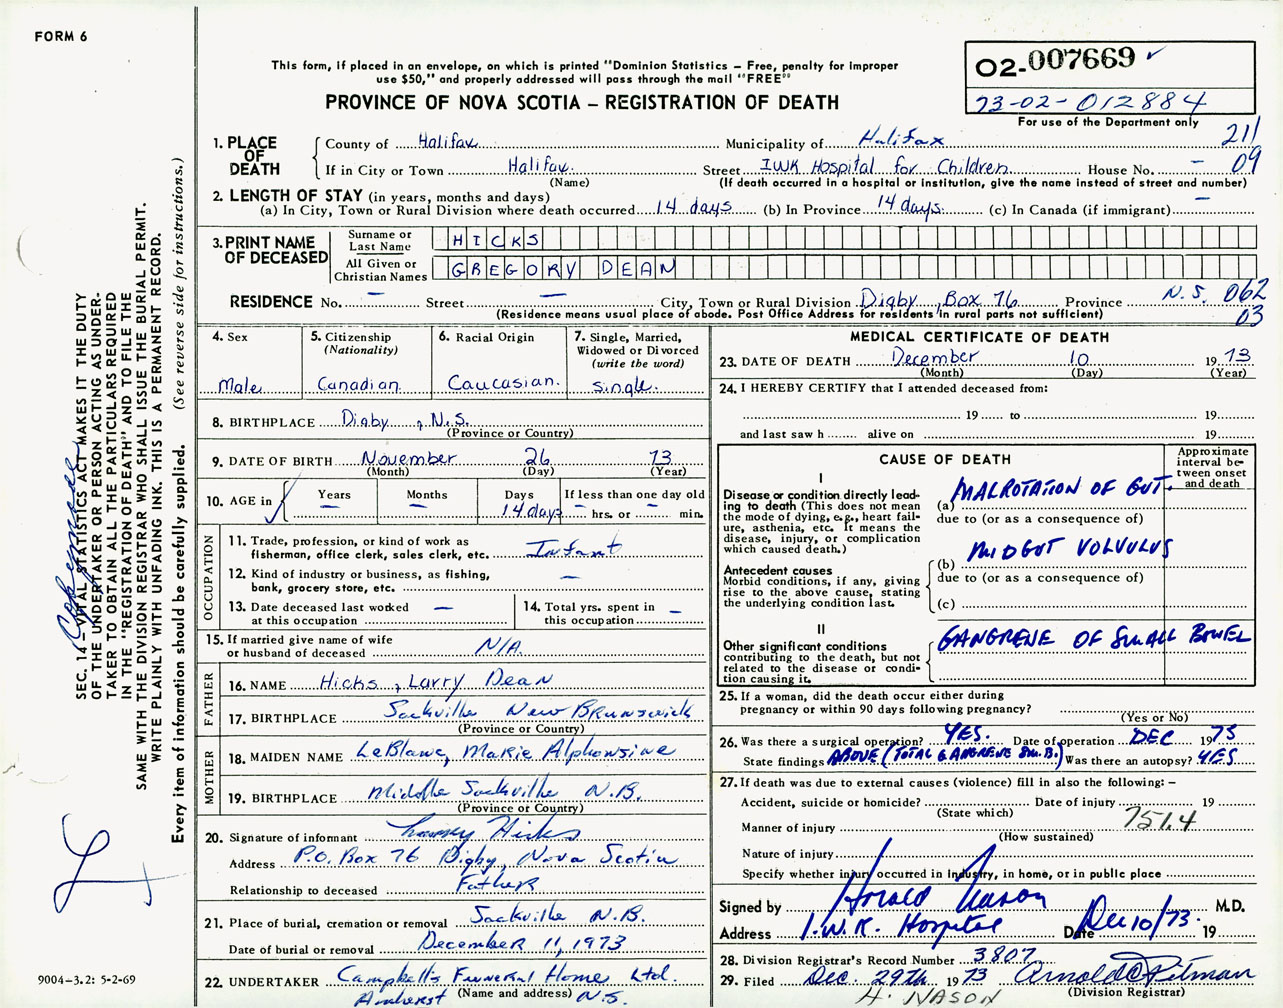 FORM 6
This form, if placed in an envelope, on which is printed "Dominion Statistics – Free, penalty for improper
use $50," and properly addressed will pass through the mail "FREE"
PROVINCE OF NOVA SCOTIA – REGISTRATION OF DEATH
02-007669 ✓
73-02-012884
For use of the Department only
1. PLACE OF DEATH
County of Halifax Municipality of Halifax 211
If in City or Town Halifax Street IWK Hospital for Children House No. – 09
(Name) (If death occurred in a hospital or institution, give the name instead of street and number)
2. LENGTH OF STAY (in years, months and days)
(a) In City, Town or Rural Division where death occurred 14 days (b) In Province 14 days. (c) In Canada (if immigrant) –
3. PRINT NAME OF DECEASED
Surname or Last Name HICKS
All Given or Christian Names GREGORY DEAN
RESIDENCE No. – Street – City, Town or Rural Division Digby, Box 76 Province N.S. 062
(Residence means usual place of abode. Post Office Address for residents in rural parts not sufficient) 03
4. Sex
Male
5. Citizenship
(Nationality)
Canadian
6. Racial Origin
Caucasian.
7. Single, Married,
Widowed or Divorced
(write the word)
Single.
8. BIRTHPLACE Digby, N.S.
(Province or Country)
9. DATE OF BIRTH November 26 73
(Month) (Day) (Year)
10. AGE in Years – Months – Days 14 days If less than one day old – hrs. or – min.
OCCUPATION
11. Trade, profession, or kind of work as
fisherman, office clerk, sales clerk, etc. Infant
12. Kind of industry or business, as fishing,
bank, grocery store, etc. –
13. Date deceased last worked
at this occupation –
14. Total yrs. spent in
this occupation –
15. If married give name of wife
or husband of deceased N/A.
FATHER
16. NAME Hicks, Larry Dean
17. BIRTHPLACE Sackville New Brunswick
(Province or Country)
MOTHER
18. MAIDEN NAME LeBlanc, Marie Alphonsine
19. BIRTHPLACE Middle Sackville N.B.
(Province or Country)
20. Signature of informant Larry Hicks
Address P.O. Box 76 Digby, Nova Scotia
Relationship to deceased Father
21. Place of burial, cremation or removal Sackville N.B.
Date of burial or removal December 11, 1973
22. UNDERTAKER Campbell's Funeral Home Ltd.
Amherst (Name and address) N.S.
MEDICAL CERTIFICATE OF DEATH
23. DATE OF DEATH December 10 1973
(Month) (Day) (Year)
24. I HEREBY CERTIFY that I attended deceased from:
19 to 19
and last saw h alive on 19
CAUSE OF DEATH
Approximate
interval be-
tween onset
and death
I
Disease or condition directly lead-
ing to death (This does not mean
the mode of dying, e.g., heart fail-
ure, asthenia, etc. It means the
disease, injury, or complication
which caused death.)
(a) MALROTATION OF GUT.
due to (or as a consequence of)
Antecedent causes
Morbid conditions, if any, giving
rise to the above cause, stating
the underlying condition last.
(b) MIDGUT VOLVULUS
due to (or as a consequence of)
(c)
II
Other significant conditions
contributing to the death, but not
related to the disease or condi-
tion causing it.
GANGRENE OF SMALL BOWEL
25. If a woman, did the death occur either during
pregnancy or within 90 days following pregnancy?
(Yes or No)
26. Was there a surgical operation? YES. Date of operation DEC 1973
State findings ABOVE (TOTAL GANGRENE SM.B.) Was there an autopsy? YES
27. If death was due to external causes (violence) fill in also the following: –
Accident, suicide or homicide? Date of injury 19
(State which)
Manner of injury 751.4
(How sustained)
Nature of injury
Specify whether injury occurred in Industry, in home, or in public place
Signed by Harold Nason M.D.
Address I.W.K. Hospital Date Dec 10/73. 19
28. Division Registrar's Record Number 3807
29. Filed Dec. 29th 1973 Arnold C Pitman
H. NASON (Division Registrar)
SEC. 14 – VITAL STATISTICS ACT MAKES IT THE DUTY
OF THE UNDERTAKER OR PERSON ACTING AS UNDER-
TAKER TO OBTAIN ALL THE PARTICULARS REQUIRED
IN THE "REGISTRATION OF DEATH" AND TO FILE THE
SAME WITH THE DIVISION REGISTRAR WHO SHALL ISSUE THE BURIAL PERMIT.
WRITE PLAINLY WITH UNFADING INK. THIS IS A PERMANENT RECORD.
Every item of information should be carefully supplied. (See reverse side for instructions.)
9004-3.2: 5-2-69